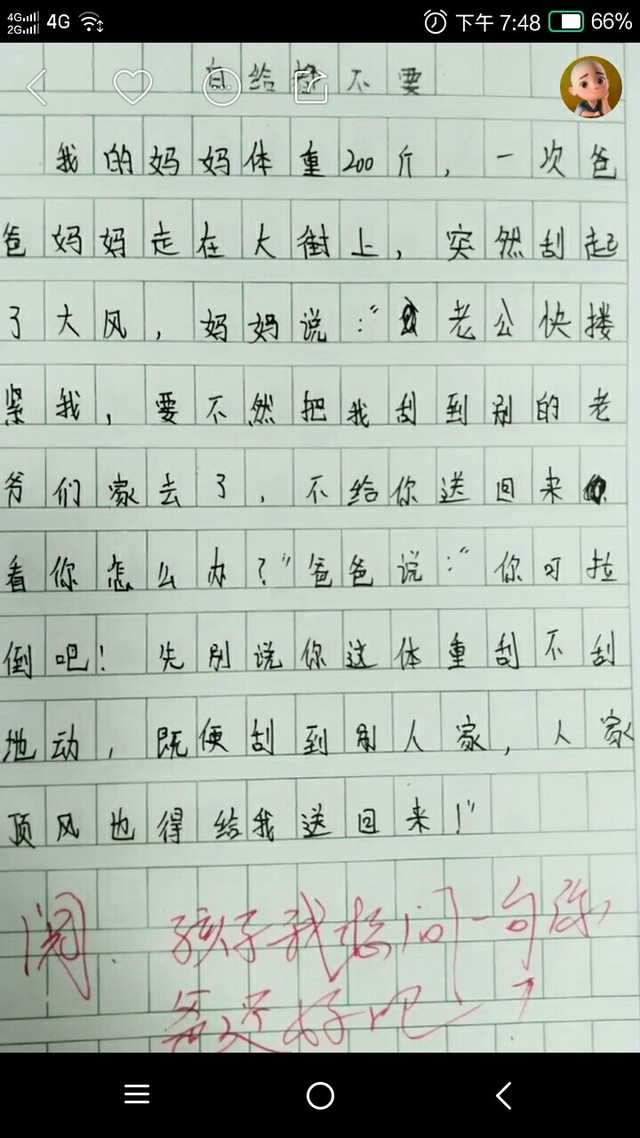 4G 2G 4G 下午 7:48 66%
白给不要
我的妈妈体重200斤，一次爸
爸妈妈走在大街上，突然刮起
了大风，妈妈说："老公快搂
紧我，要不然把我刮到别的老
爷们家去了，不给你送回来
看你怎么办？"爸爸说："你可拉
倒吧！先别说你这体重刮不刮
地动，既便刮到别人家，人家
顶风也得给我送回来！"
阅. 孩子我想问一句你
爸还好吧？